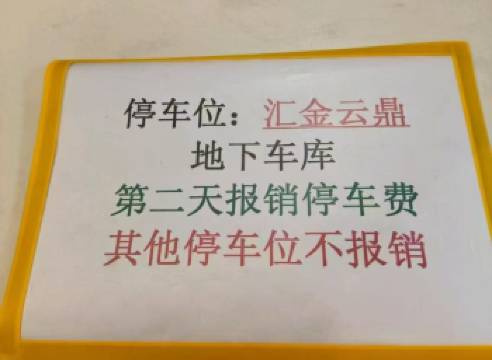 停车位：汇金云鼎
地下车库
第二天报销停车费
其他停车位不报销